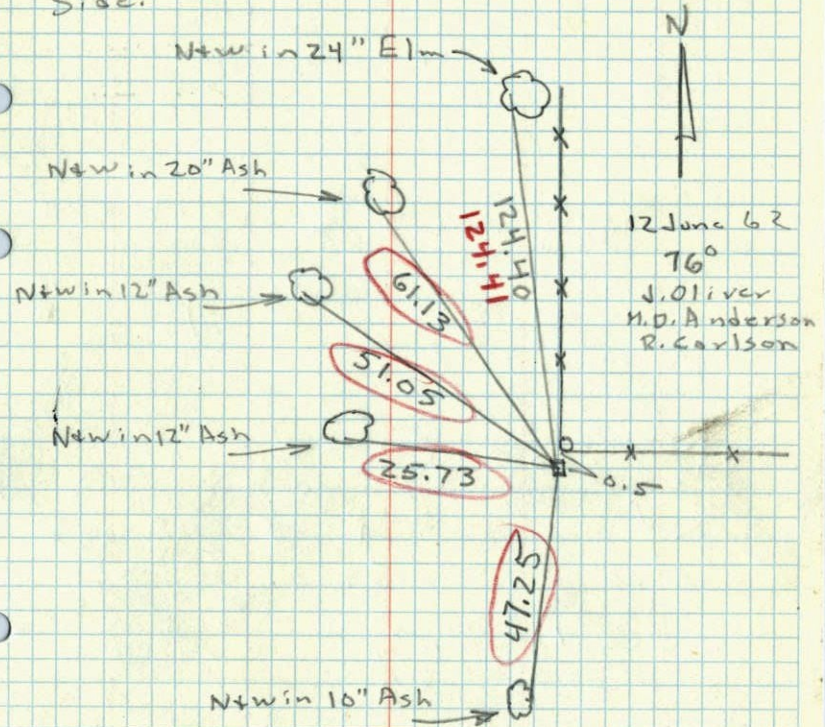 Side.
N
N+W in 24" Elm
N+W in 20" Ash
124.40
124.41
12 June 62
76°
J. Oliver
M.D. Anderson
R. Carlson
61.13
N+W in 12" Ash
51.05
N+W in 12" Ash
25.73
0.5
47.25
N+W in 10" Ash